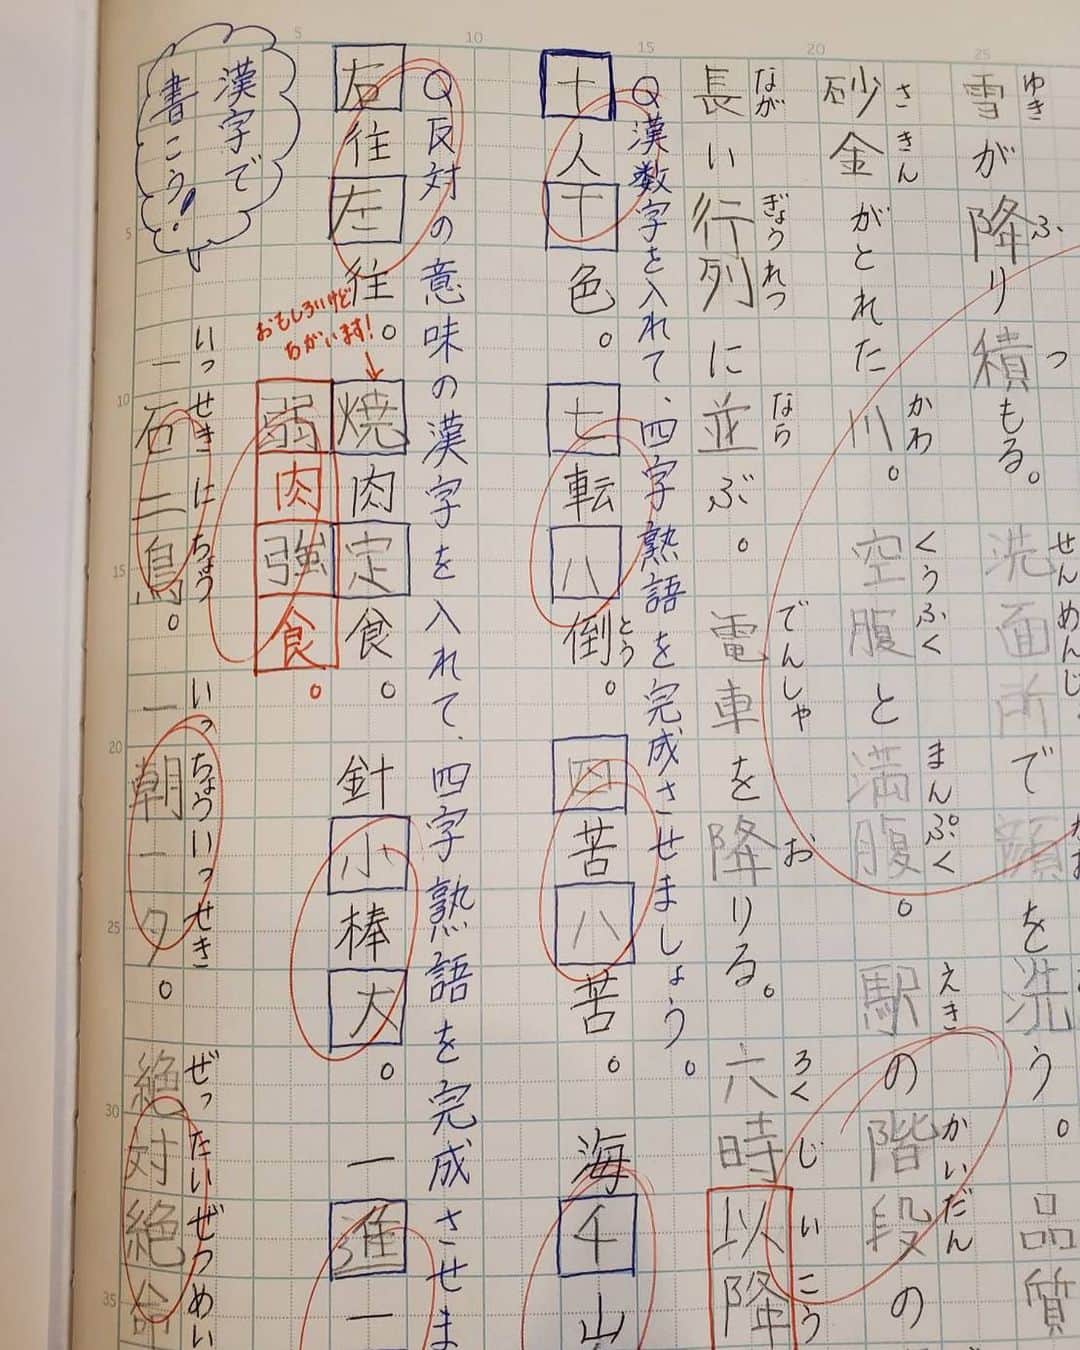 ゆき ふ つ せんめんじ
雪が降り積もる。洗面所で顔を洗う。品質
さきん かわ くうふく まんぷく えき かいだん
砂金がとれた川。空腹と満腹。駅の階段の
なが ぎょうれつ なら でんしゃ お ろくじ いこう
長い行列に並ぶ。電車を降りる。六時以降
Q漢数字を入れて、四字熟語を完成させましょう。
十人十色。七転八倒。四苦八苦。海千山
とう
Q反対の意味の漢字を入れて、四字熟語を完成させま
右往左往。焼肉定食。針小棒大。一進一
おもしろいけど
ちがいます!
弱肉強食。
いっせきにちょう いっちょういっせき ぜったいぜつめい
一石二鳥。一朝一夕。絶対絶命
漢字で
書こう!
5
10
15
20
25
5
10
15
20
25
30
35